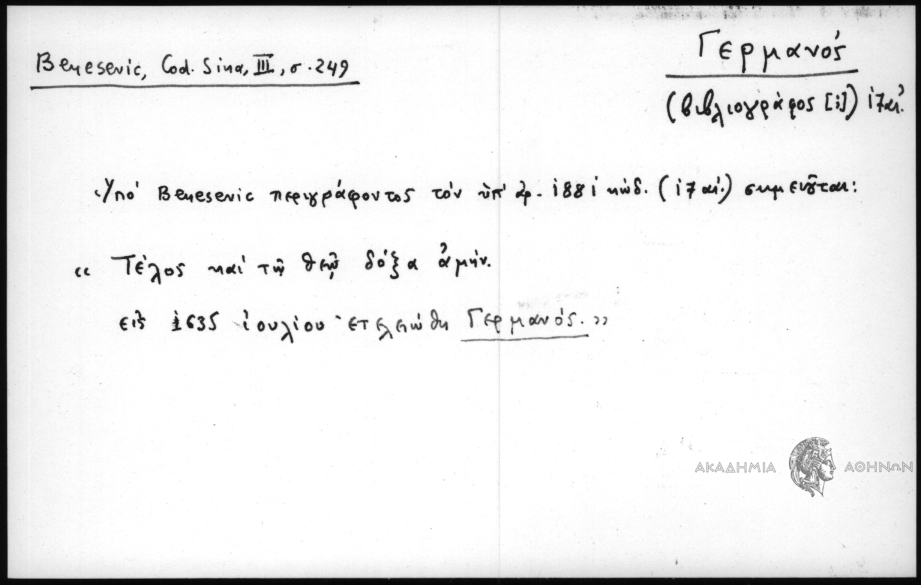 Benesevic, Cod. Sina, III, σ. 249
Γερμανός
(βιβλιογράφος [;]) 17 αἰ.
Ὑπό Benesevic περιγράφοντος τόν ὑπ' ἀρ. 1881 κώδ. (17 αἰ.) σημειοῦται:
« Τέλος καί τῷ θεῷ δόξα ἀμήν.
εἰς 1635 ἰουλίου ἐτελειώθη Γερμανός. »
ΑΚΑΔΗΜΙΑ ΑΘΗΝΩΝ